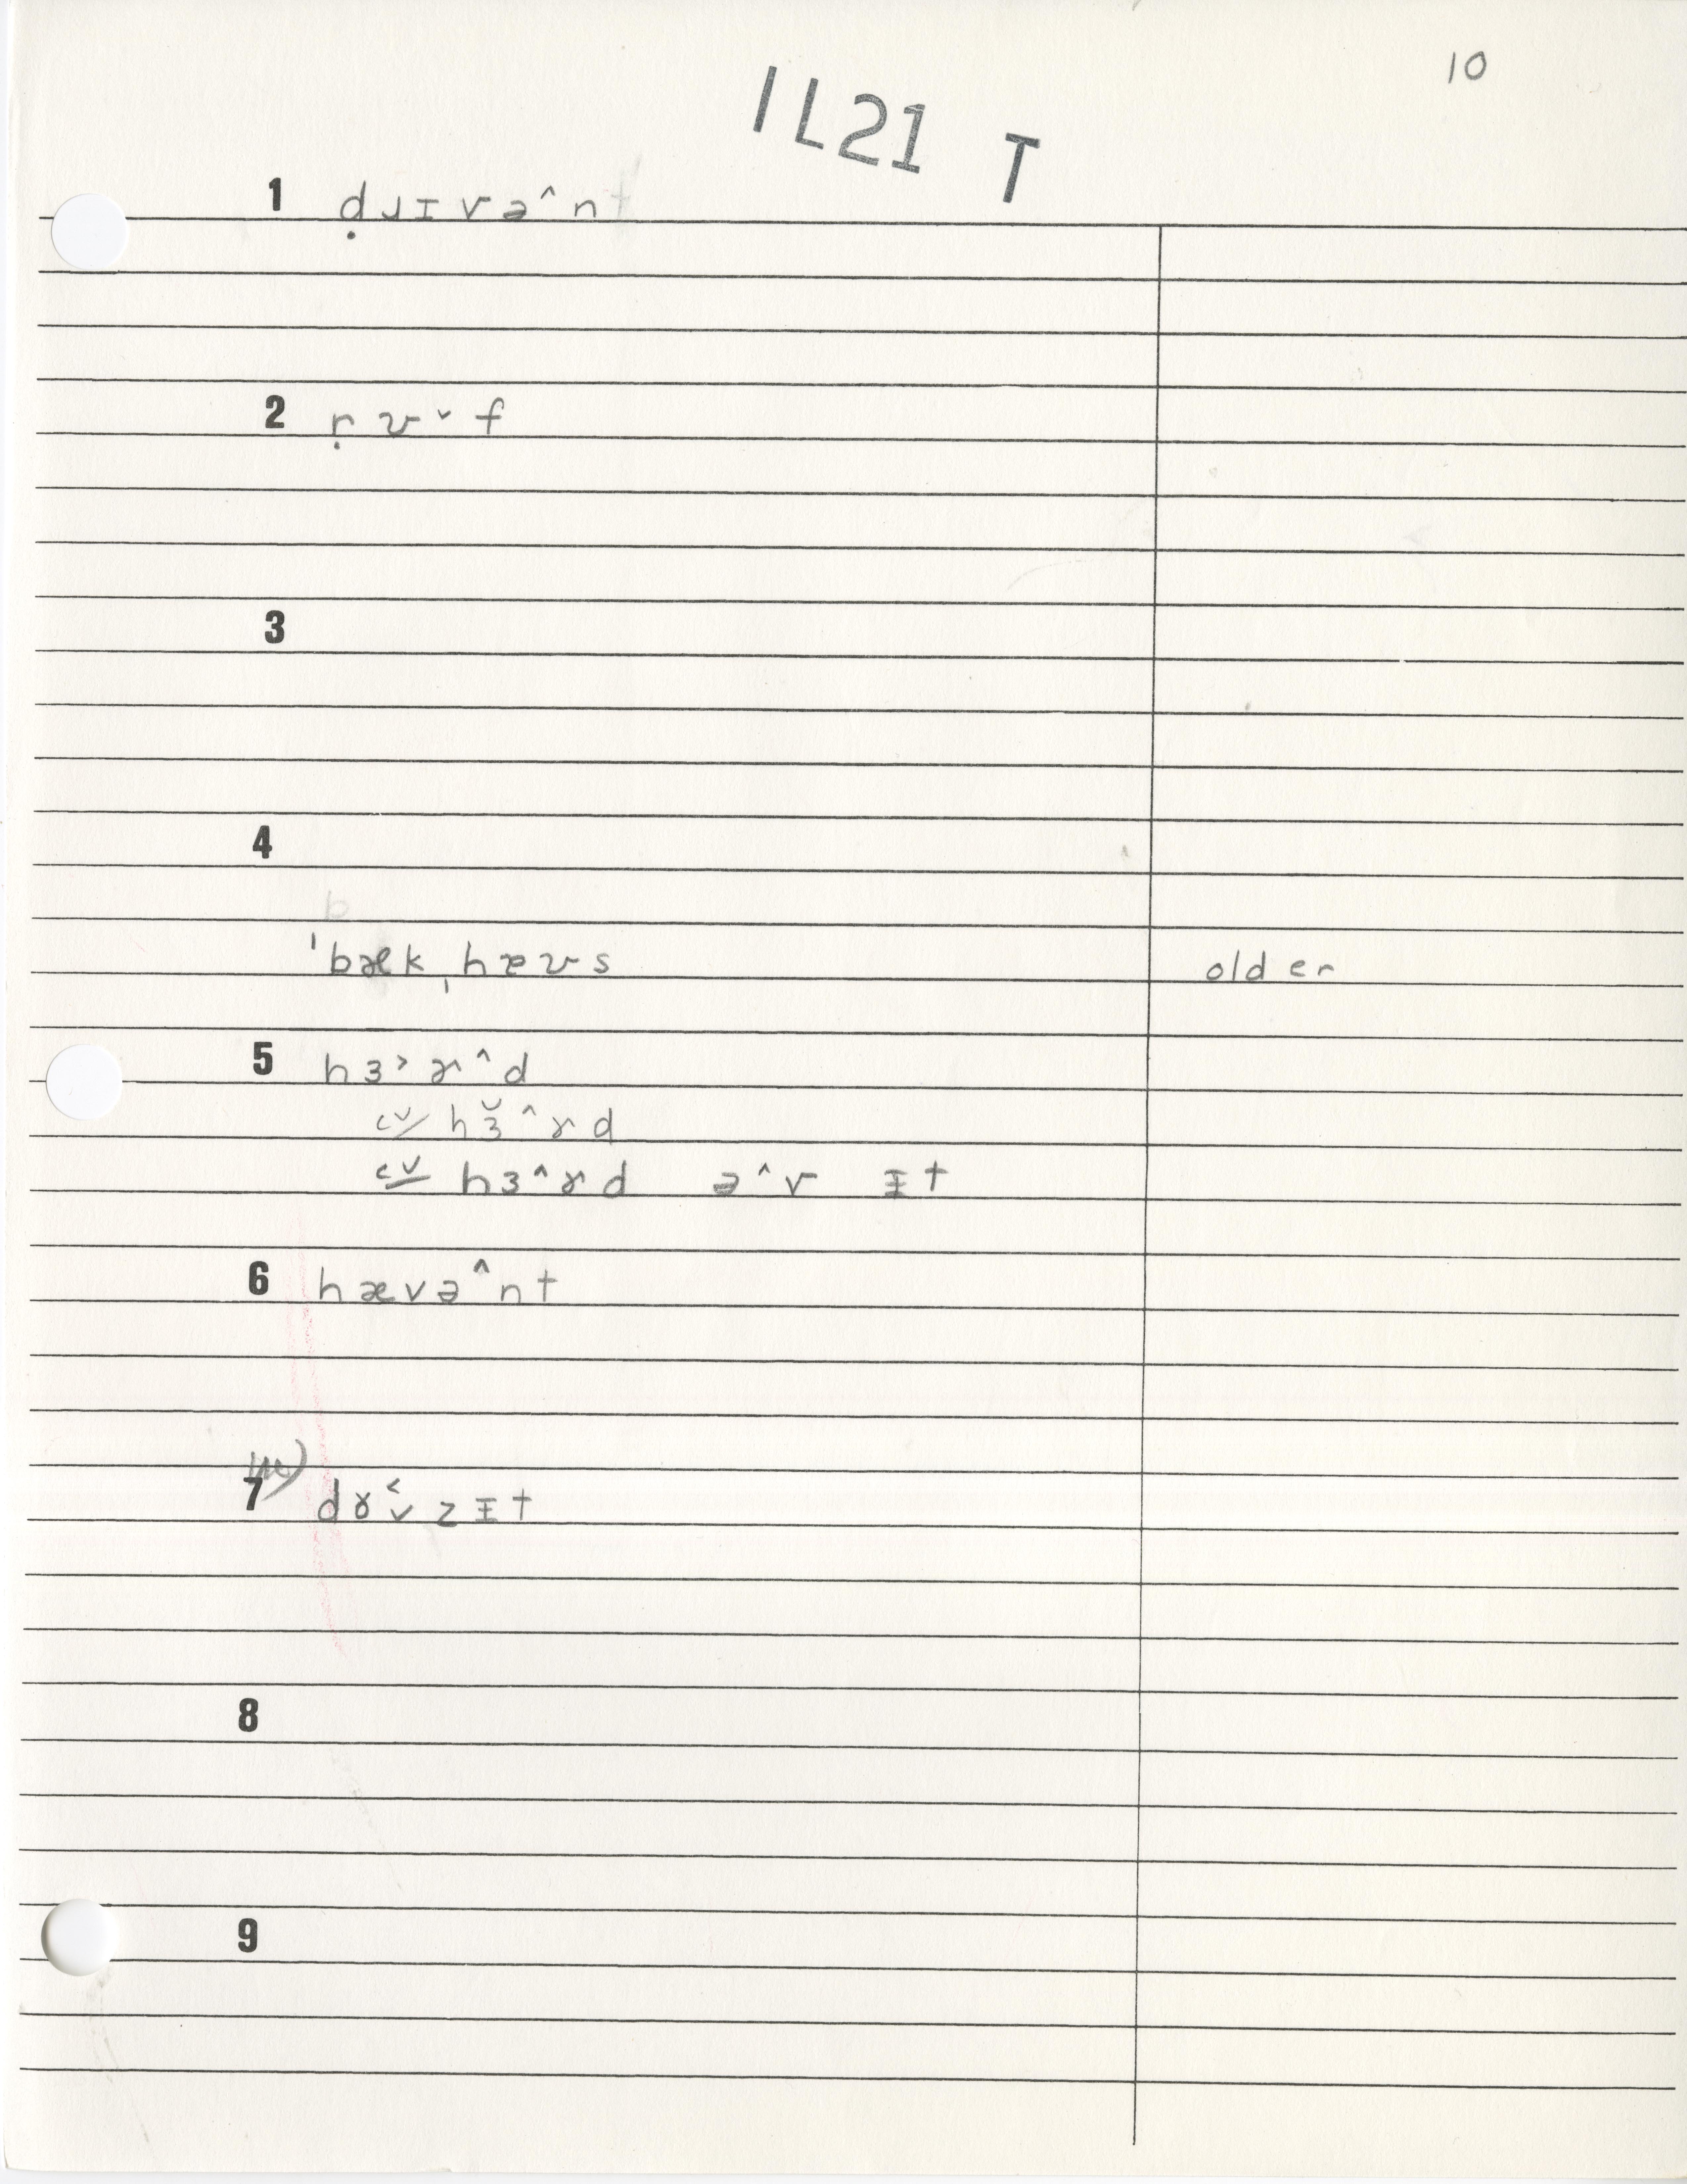 10
IL21 T
1 ḍɹɪvə^n
2 ṛʊ˅f
3
4
ˈbækˌhæʊs older
5 hɜ˃ɚ^d
cv hɜ̆^ɚd
cv hɜ^ɚd ə^v ɪt
6 hævə^nt
7 dɤ˂˅zɪt
8
9